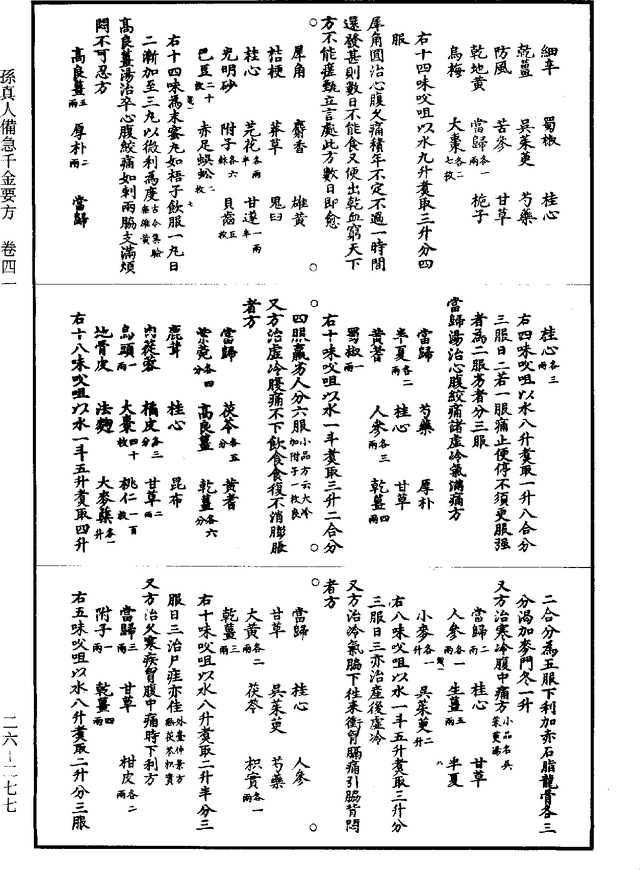 孫真人備急千金要方　卷四一
細辛　蜀椒　桂心
乾薑　吳茱萸　芍藥
防風　苦參　甘草
乾地黃　當歸各一兩　梔子
烏梅　大棗各二七枚
右十四味㕮咀以水九升煑取三升分四
服
犀角圓治心腹久痛積年不定不過一時間
還發甚則數日不能食又便出乾血窮天下
方不能瘥甄立言處此方數日即愈
犀角　麝香　雄黃
桔梗　莽草　鬼臼
桂心　芫花各半兩　甘遂一兩半
光明砂　附子各六銖　貝齒五枚
巴豆二十枚　赤足蜈蚣二枚
右十四味為末蜜丸如梧子飲服一丸日
二漸加至三丸以微利為度古今集驗無雄黃
高良薑湯治卒心腹絞痛如刺兩脇支滿煩
悶不可忍方
高良薑五兩　厚朴二兩　當歸
桂心各三兩
右四味㕮咀以水八升煑取一升八合分
三服日二若一服痛止便停不須更服强
者為二服劣者分三服
當歸湯治心腹絞痛諸虛冷氣滿痛方
當歸　芍藥　厚朴
半夏各二兩　桂心　甘草
黃耆　人參各三兩　乾薑四兩
蜀椒一兩
右十味㕮咀以水一斗煑取三升二合分
四服羸劣人分六服小品方云大冷加附子一枚良
又方治虛冷腹痛不下飲食食復不消膨脹
者方
當歸　茯苓各五分　黃耆
紫菀各四分　高良薑　乾薑各六分
鹿茸　桂心　昆布
肉蓯蓉　橘皮各三分　甘草二兩
烏頭一兩　大棗四十枚　桃仁一百枚
地骨皮　法麴　大麥糵各一升
右十八味㕮咀以水一斗五升煑取四升
二合分為五服下利加赤石脂龍骨各三
分渴加麥門冬一升
又方治寒冷腹中痛方小品名吳茱萸湯
當歸二兩　桂心　甘草
人參各一兩　生薑五兩　半夏
小麥各一升　吳茱萸二升
右八味㕮咀以水一斗五升煑取三升分
三服日三亦治產後虛冷
又方治冷氣脇下往來衝胷膈痛引脇背悶
者方
當歸　桂心　人參
甘草　吳茱萸　芍藥
大黃各二兩　茯苓　枳實各一兩
乾薑三兩
右十味㕮咀以水八升煑取二升半分三
服日三治尸疰亦佳外臺仲景方無茯苓枳實
又方治久寒疾胷腹中痛時下利方
當歸三兩　甘草　柑皮各二兩
附子一兩　乾薑四兩
右五味㕮咀以水八升煑取二升分三服
二六－二七七